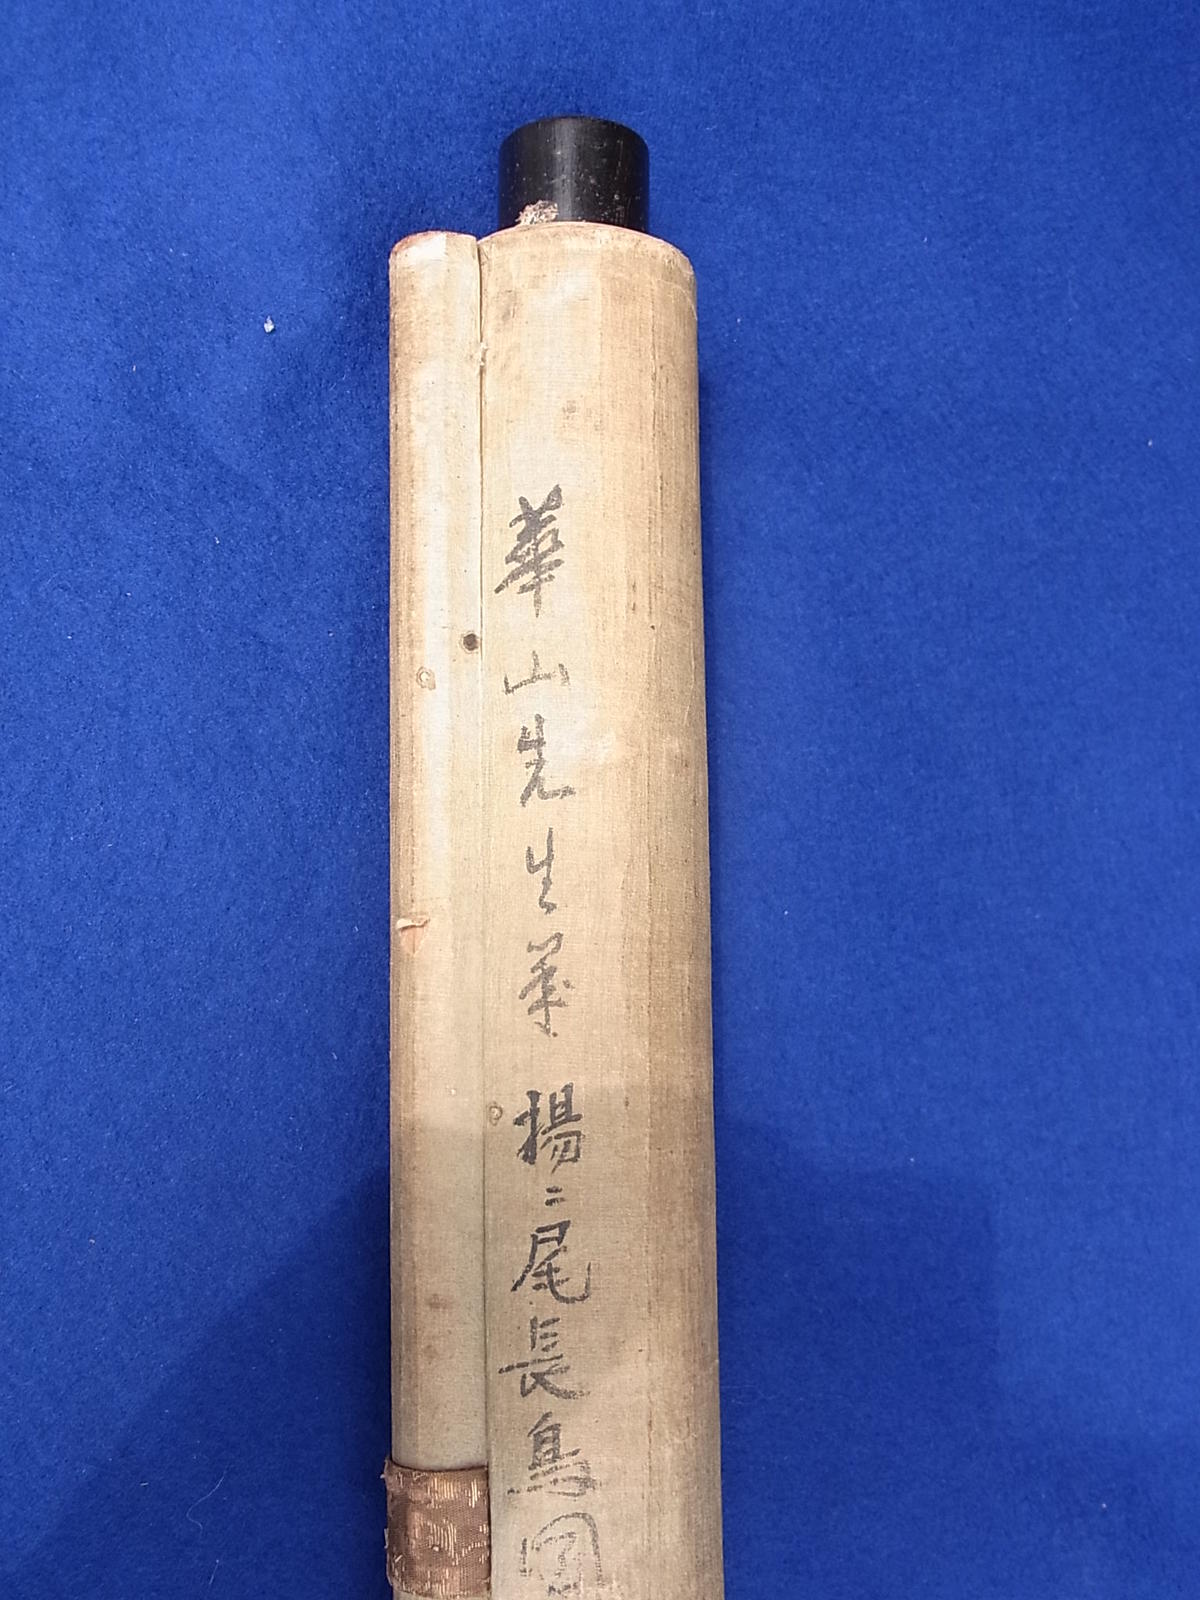 華山先生筆 揚〻尾長鳥図